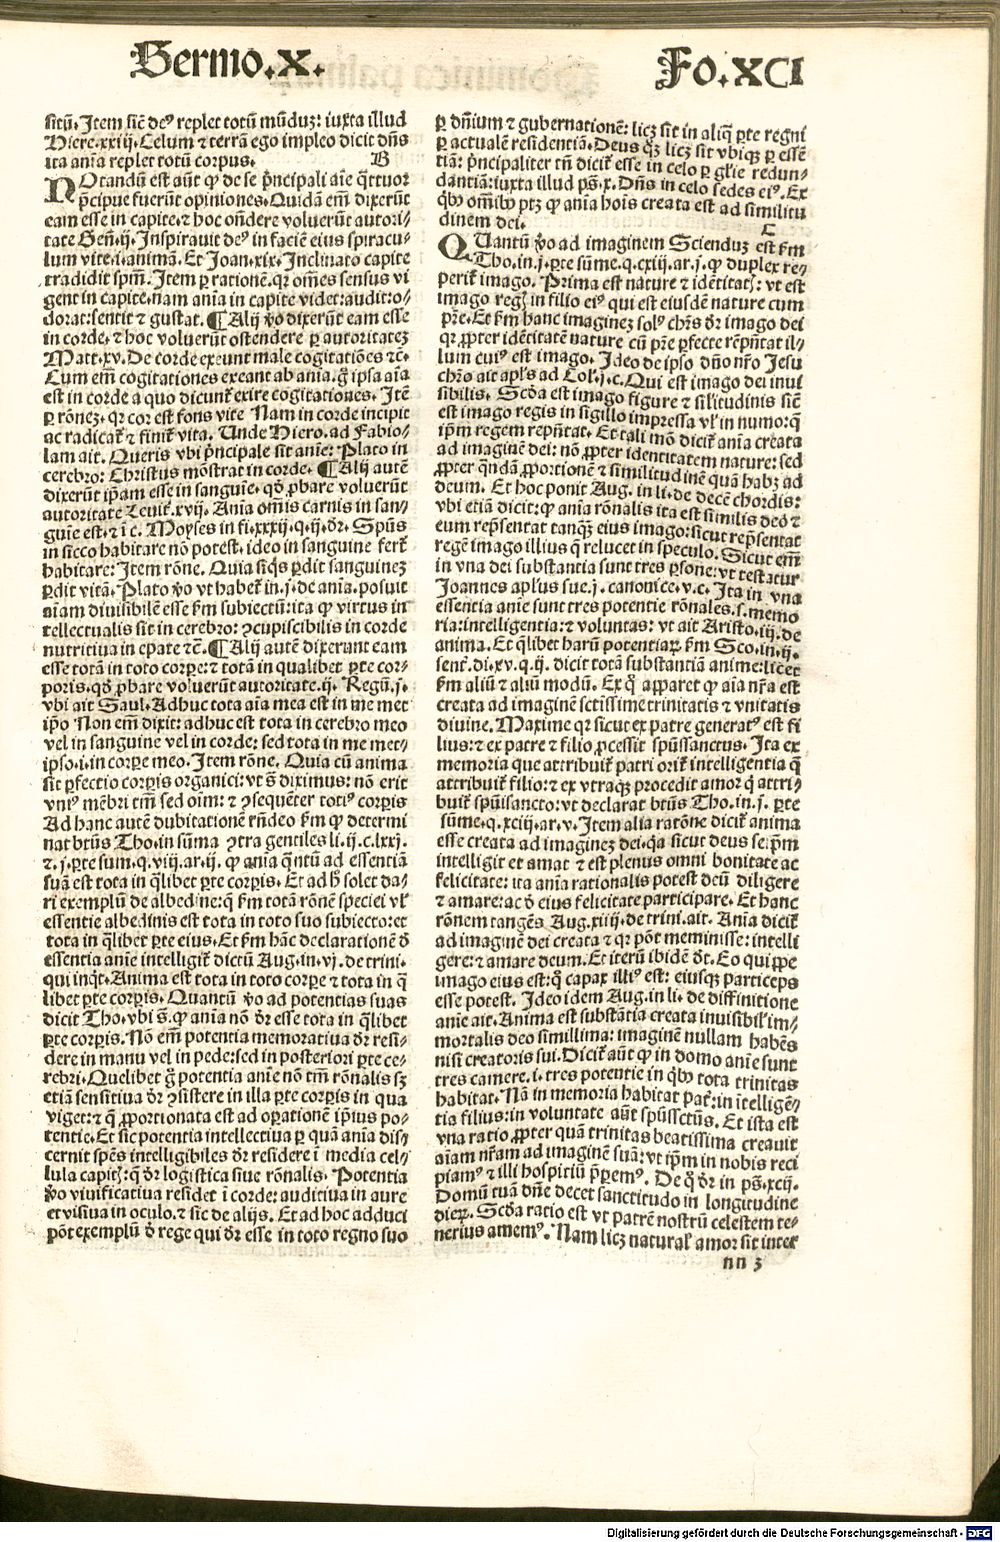 Sermo.X.
Fo.XCI
sitū. Item sic̄ deꝰ replet totū mūduꝫ: iuxta illud
Hiere.xxiij. Celum ⁊ terrā ego impleo dicit dn̄s
ita anīa replet totū corpus. B
NOtandū est aūt ꝙ de se p̄ncipali aīe q̄ttuor
p̄cipue fuerūt opiniones. Quidā em̄ dixerūt
eam esse in capite. ⁊ hoc on̄dere voluerūt autori-
tate Gen̄.ij. Inspirauit deꝰ in faciē eius spiracu-
lum vite.i. animā. Et Ioan.xix. Inclinato capite
tradidit spm̄. Item ꝑ rationē. qꝛ om̄es sensus vi
gent in capite. nam anīa in capite videt: audit: o-
dorat: sentit ⁊ gustat. ¶ Alij v̄o dixerūt eam esse
in corde. ⁊ hoc voluerūt ostendere ꝑ autoritateꝫ
Matt.xv. De corde exeunt male cogitatiōes ⁊c̄.
Cum em̄ cogitationes exeant ab anīa. g̊ ipsa aīa
est in corde a quo dicunt᷑ exire cogitationes. Itē
ꝑ rōneꝫ. qꝛ cor est fons vite Nam in corde incipit
ac radicat᷑ ⁊ finit᷑ vita. Unde Hiero. ad Fabio-
lam ait. Queris vbi p̄ncipale sit anīe: Plato in
cerebro: Christus mōstrat in corde. ¶ Alij autē
dixerūt ip̄am esse in sanguīe. qd̄ ꝓbare voluerūt
autoritate Leuit᷑.xvij. Anīa om̄is carnis in san-
guīe est. ⁊ ī c. Moyses in fi.xxxij.q.ij. dr̄. Spūs
in sicco habitare nō potest. ideo in sanguine fert᷑
habitare: Item rōne. Quia siq̄s ꝑdit sanguineꝫ
ꝑdit vitā. Plato v̄o vt habet᷑ in.j. de anīa. posuit
aīam diuisibilē esse ẜm subiectū: ita ꝙ virtus in
tellectualis sit in cerebro: ꝯcupiscibilis in corde
nutritiua in epate ⁊c̄. ¶ Alij autē dixerunt eam
esse totā in toto corꝑe: ⁊ totā in qualibet ꝑte cor-
poris. qd̄ ꝓbare voluerūt autoritate.ij. Regū.j.
vbi ait Saul. Adhuc tota aīa mea est in me met
ip̄o Non em̄ dixit: adhuc est tota in cerebro meo
vel in sanguine vel in corde: sed tota in me met-
ipso.i. in corꝑe meo. Item rōne. Quia cū anima
sit ꝑfectio corꝑis organici: vt s̄ diximus: nō erit
vniꝰ mēbri tm̄ sed oīm: ⁊ ꝯsequēter totiꝰ corꝑis
Ad hanc autē dubitationē rn̄deo ẜm ꝙ determi
nat btūs Tho. in sūma ꝯtra gentiles li.ij.c.lxxij.
⁊.j. ꝑte sum.q.viij.ar.ij. ꝙ anīa q̄ntū ad essentiā
suā est tota in q̄libet ꝑte corꝑis. Et ad h̄ solet da-
ri exemplū de albedine: q̄ ẜm totā rōnē speciei vl᷑
essentie albedinis est tota in toto suo subiecto: et
tota in q̄libet ꝑte eius. Et ẜm hāc declarationē d̄
essentia anīe intelligit᷑ dictū Aug.in.vj. de trini.
qui inq̄t. Anima est tota in toto corꝑe ⁊ tota in q̄
libet ꝑte corꝑis. Quantū v̄o ad potentias suas
dicit Tho. vbi s̄. ꝙ anīa nō dr̄ esse tota in q̄libet
ꝑte corꝑis. Nō em̄ potentia memoratiua dr̄ resi-
dere in manu vel in pede: sed in posteriori ꝑte ce-
rebri. Quelibet g̊ potentia anīe nō tm̄ rōnalis sꝫ
etiā sensitiua dr̄ ꝯsistere in illa ꝑte corꝑis in qua
viget: ⁊ q̄ ꝓportionata est ad oꝑationē ip̄ius po-
tentie. Et sic potentia intellectiua ꝑ quā anīa dis-
cernit spēs intelligibiles dr̄ residere ī media cel-
lula capitꝭ: q̄ dr̄ logistica siue rōnalis. Potentia
v̄o viuificatiua residet ī corde: auditiua in aure
et visiua in oculo. ⁊ sic̄ de alijs. Et ad hoc adduci
pōt exemplū d̄ rege qui dr̄ esse in toto regno suo
ꝑ dn̄ium ⁊ gubernationē: licꝫ sit in aliq̄ ꝑte regni
ꝑ actualē residentiā. Deus qꝫ licꝫ sit vbiqꝫ ꝑ essē
tiā: p̄ncipaliter tn̄ dicit᷑ esse in celo ꝑ gl̄ie redun-
dantiā: iuxta illud ps̄.x. Dn̄s in celo sedes eiꝰ. Ex
qb̄ꝰ om̄ibꝰ ptꝫ ꝙ anīa hoīs creata est ad similitu
dinem dei. C
QUantū v̄o ad imaginem Scienduꝫ est ẜm
Tho.in.j. ꝑte sūme.q.cxiij.ar.j. ꝙ duplex re-
perit᷑ imago. Prima est nature ⁊ idētitatꝭ: vt est
imago regꝭ in filio eiꝰ qui est eiusdē nature cum
pr̄e. Et ẜm hanc imagineꝫ solꝰ chr̄s dr̄ imago dei
qꝛ ꝓpter idētitatē nature cū pr̄e ꝑfecte rep̄ntat il-
lum cuiꝰ est imago. Ideo de ipso dn̄o nr̄o Iesu
chr̄o ait apl̄s ad Col᷑.j.c. Qui est imago dei inui
sibilis. Scd̄a est imago figure ⁊ sil̄itudinis sic̄
est imago regis in sigillo impressa vl᷑ in numo: q̄
ip̄m regem rep̄ntat. Et tali mō dicit᷑ anīa creata
ad imaginē dei: nō ꝓpter identitatem nature: sed
ꝓpter q̄ndā ꝓportionē ⁊ similitudinē quā habꝫ ad
deum. Et hoc ponit Aug. in li. de decē chordis:
vbi etiā dicit: ꝙ anīa rōnalis ita est similis deo ⁊
eum rep̄sentat tanqꝫ eius imago: sicut rep̄sentat
regē imago illius q̄ relucet in speculo. Sicut em̄
in vna dei substantia sunt tres ꝑsone: vt testatur
Joannes apl̄us sue.j. canonice.v.c. Ita in vna
essentia anīe sunt tres potentie rōnales.s. memo
ria: intelligentia: ⁊ voluntas: vt ait Aristo.iij. de
anima. Et q̄libet harū potentiaꝝ ẜm Sco.in.ij.
sent᷑.di.xv.q.ij. dicit totā substantiā anime: licet
ẜm aliū ⁊ aliū modū. Ex q̊ apparet ꝙ aīa nr̄a est
creata ad imaginē sctīssime trinitatis ⁊ vnitatis
diuine. Maxime qꝛ sicut ex patre generatꝰ est fi
lius: ⁊ ex patre ⁊ filio ꝓcessit spūssanctus. Ita ex
memoria que attribuit᷑ patri orit᷑ intelligentia q̄
attribuit᷑ filio: ⁊ ex vtraqꝫ procedit amor q̇ attri-
buit᷑ spūisancto: vt declarat btūs Tho.in.j. ꝑte
sūme.q.xciij.ar.v. Item alia ratōne dicit᷑ anima
esse creata ad imagineꝫ dei. qa sicut deus seip̄m
intelligit et amat ⁊ est plenus omni bonitate ac
felicitate: ita anīa rationalis potest deū diligere
⁊ amare: ac d̄ eius felicitate participare. Et hanc
rōnem tangēs Aug.xiiij. de trini. ait. Anīa dicit᷑
ad imaginē dei creata ⁊ qꝛ pōt meminisse: intelli
gere: ⁊ amare deum. Et iterū ibidē dt̄. Eo qui ꝓpe
imago eius est: q̊ capax illiꝰ est: eiusqꝫ particeps
esse potest. Ideo idem Aug. in li. de diffinitione
anīe ait. Anima est substātia creata inuisibil᷑ im-
mortalis deo simillima: imaginē nullam habēs
nisi creatoris sui. Dicit᷑ aūt ꝙ in domo anīe sunt
tres camere.i. tres potentie in qb̄ꝰ tota trinitas
habitat. Nā in memoria habitat pat᷑: in ītelligē-
tia filius: in voluntate aūt spūssctūs. Et ista est
vna ratio ꝓpter quā trinitas beatissima creauit
aīam nr̄am ad imaginē suā: vt ip̄m in nobis reci
piamꝰ ⁊ illi hospitiū p̄ꝑemꝰ. De q̊ dr̄ in ps̄.xcij.
Domū tuā dn̄e decet sanctitudo in longitudine
dieꝝ. Scd̄a ratio est vt patrē nostrū celestem te-
nerius amemꝰ. Nam licꝫ natural᷑ amor sit inter
nn 3
Digitalisierung gefördert durch die Deutsche Forschungsgemeinschaft - DFG